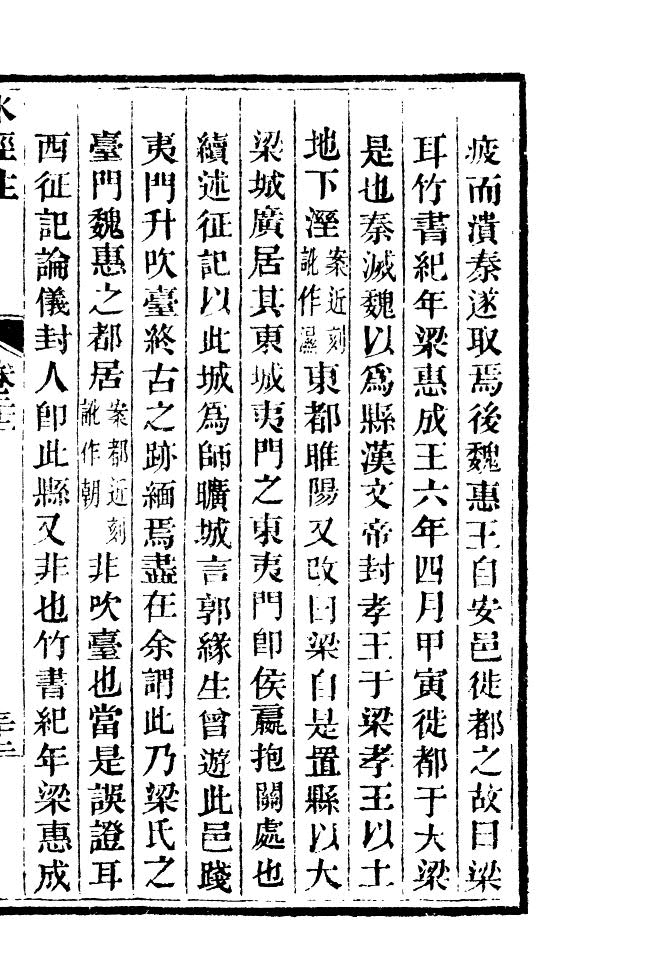 疲而潰秦遂取焉後魏惠王自安邑徙都之故曰梁
耳竹書紀年梁惠成王六年四月甲寅徙都于大梁
是也秦滅魏以爲縣漢文帝封孝王于梁孝王以土
地下溼案近刻訛作濕東都睢陽又改曰梁自是置縣以大
梁城廣居其東城夷門之東夷門卽侯嬴抱關處也
續述征記以此城爲師曠城言郭緣生曾遊此邑踐
夷門升吹臺終古之跡緬焉盡在余謂此乃梁氏之
臺門魏惠之都居案都近刻訛作朝非吹臺也當是誤證耳
西征記論儀封人卽此縣又非也竹書紀年梁惠成
水經注